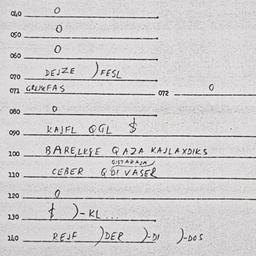 040 0
050 0
060 0
070 DEJZE )FESL
071 072 0
080 0
090 KAJFL QGL $
100 BARELKGE QAZA KAJLAXDIKS
110 CEBER QDI VASER
120 0
130 $ )-KL ...
140 REJF )DER )-DI )-DOS